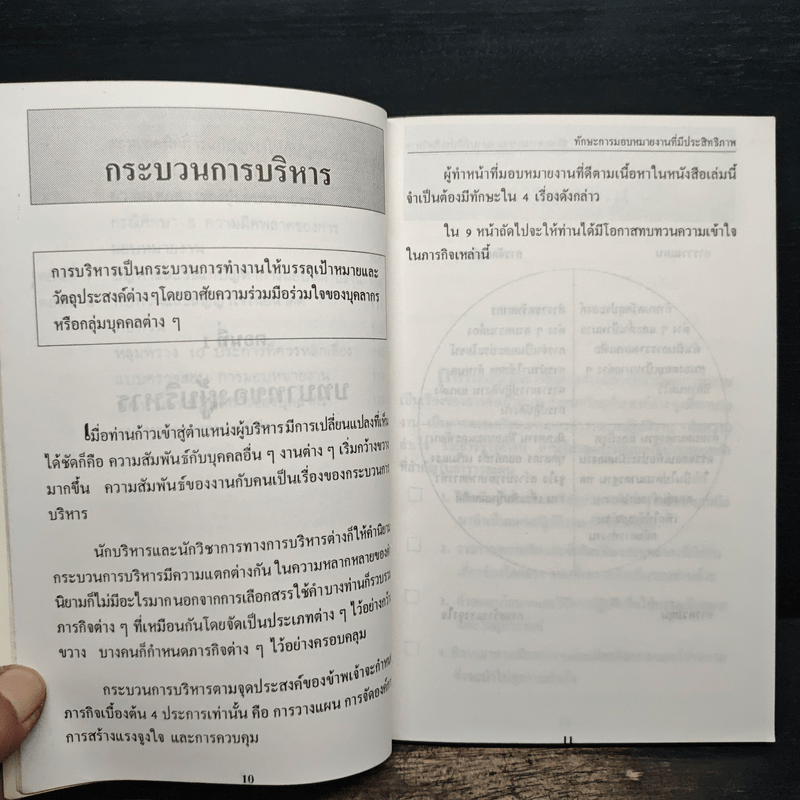 กระบวนการบริหาร
การบริหารเป็นกระบวนการทำงานให้บรรลุเป้าหมายและ
วัตถุประสงค์ต่างๆโดยอาศัยความร่วมมือร่วมใจของบุคลากร
หรือกลุ่มบุคคลต่าง ๆ
เมื่อท่านก้าวเข้าสู่ตำแหน่งผู้บริหาร มีการเปลี่ยนแปลงที่เห็น
ได้ชัดก็คือ ความสัมพันธ์กับบุคคลอื่น ๆ งานต่าง ๆ เริ่มกว้างขวาง
มากขึ้น ความสัมพันธ์ของงานกับคนเป็นเรื่องของกระบวนการ
บริหาร
นักบริหารและนักวิชาการทางการบริหารต่างก็ให้คำนิยาม
กระบวนการบริหารมีความแตกต่างกัน ในความหลากหลายของคำ
นิยามก็ไม่มีอะไรมากนอกจากการเลือกสรรใช้คำบางท่านก็รวบรวม
ภารกิจต่าง ๆ ที่เหมือนกันโดยจัดเป็นประเภทต่าง ๆ ไว้อย่างกว้าง
ขวาง บางคนก็กำหนดภารกิจต่าง ๆ ไว้อย่างครอบคลุม
กระบวนการบริหารตามจุดประสงค์ของข้าพเจ้าจะกำหนด
ภารกิจเบื้องต้น 4 ประการเท่านั้น คือ การวางแผน การจัดองค์การ
การสร้างแรงจูงใจ และการควบคุม
10
ทักษะการมอบหมายงานที่มีประสิทธิภาพ
ผู้ทำหน้าที่มอบหมายงานที่ดีตามเนื้อหาในหนังสือเล่มนี้
จำเป็นต้องมีทักษะใน 4 เรื่องดังกล่าว
ใน 9 หน้าถัดไปจะให้ท่านได้มีโอกาสทบทวนความเข้าใจ
ในภารกิจเหล่านี้
11